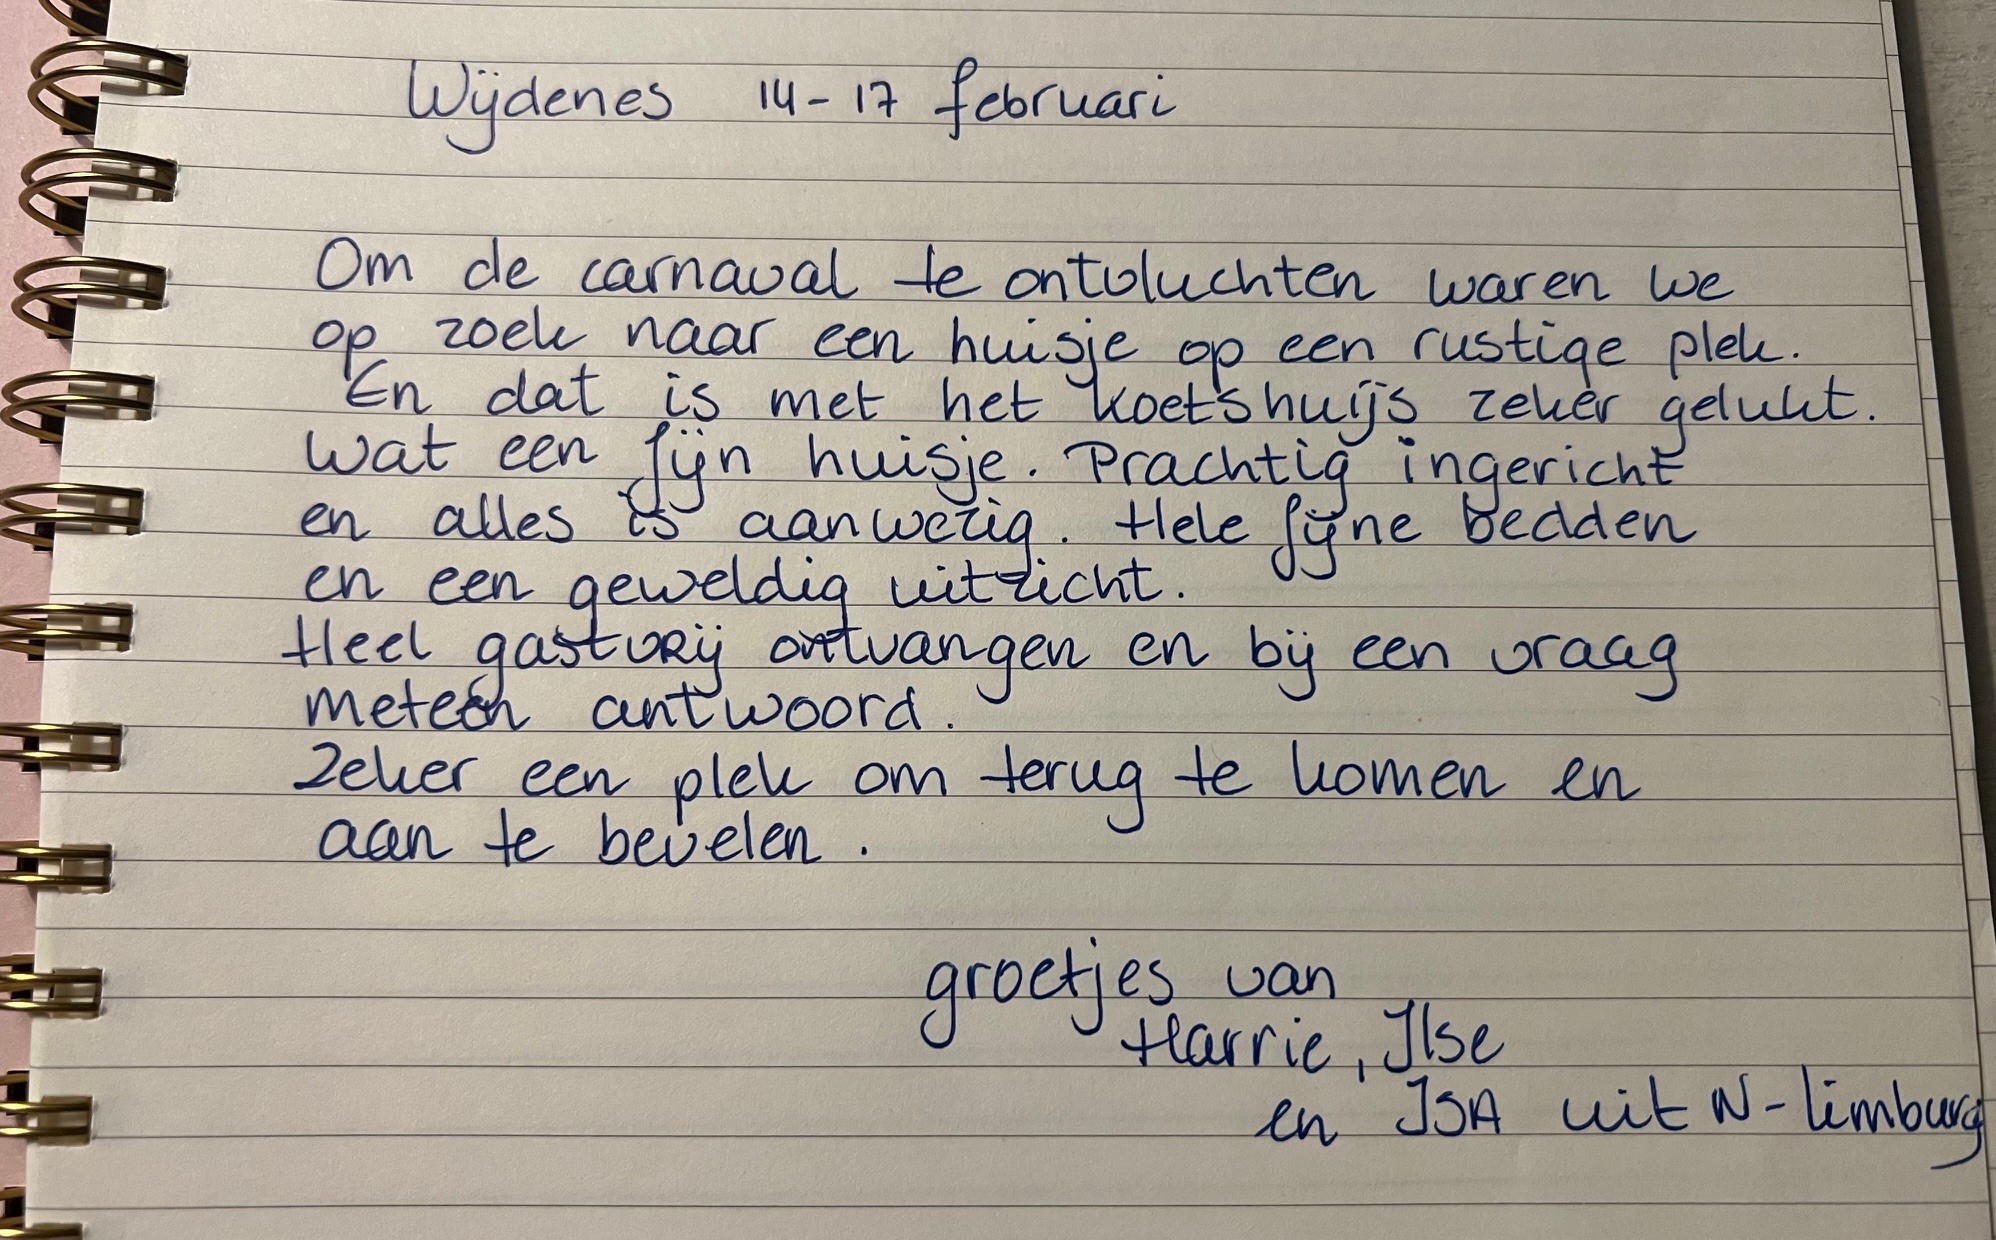 Wijdenes 14-17 februari
Om de carnaval te ontvluchten waren we
op zoek naar een huisje op een rustige plek.
En dat is met het koetshuijs zeker gelukt.
Wat een fijn huisje. Prachtig ingericht
en alles is aanwezig. Hele fijne bedden
en een geweldig uitzicht.
Heel gastvrij ontvangen en bij een vraag
meteen antwoord.
Zeker een plek om terug te komen en
aan te bevelen.
groetjes van
Harrie, Ilse
en ISA uit N-limburg